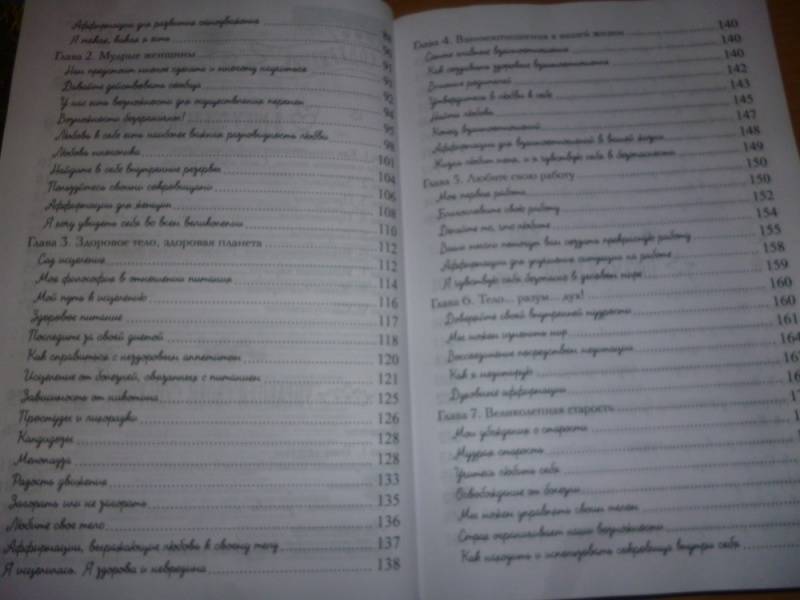 Аффирмации для развития самоуважения 88
Я такая, какая я есть 90
Глава 2. Мудрые женщины 91
Нам предстоит многое сделать и многому научиться 91
Давайте действовать сообща 92
У нас есть возможности для осуществления перемен 94
Возможности безграничны! 95
Любовь к себе есть наиболее важная разновидность любви 98
Любовь многолика 101
Найдите в себе внутренние резервы 104
Пользуйтесь своими сокровищами 106
Аффирмации для женщин 108
Я хочу увидеть себя во всем великолепии 110
Глава 3. Здоровое тело, здоровая планета 112
Сад исцеления 112
Моя философия в отношении питания 114
Мой путь к исцелению 116
Здоровое питание 117
Последите за своей диетой 118
Как справиться с нездоровым аппетитом 120
Исцеление от болезней, связанных с питанием 121
Зависимость от никотина 125
Простуды и лихорадки 126
Кандидозы 128
Менопауза 128
Радость движения 133
Загорать или не загорать 135
Любите свое тело 136
Аффирмации, выражающие любовь к своему телу 137
Я исцелилась. Я здорова и невредима 138
Глава 4. Взаимоотношения в вашей жизни 140
Самое главное взаимоотношение 140
Как создавать здоровые взаимоотношения 140
Влияние родителей 142
Утвердитесь в любви к себе 143
Найти любовь 145
Конец взаимоотношений 147
Аффирмации для взаимоотношений в вашей жизни 148
Жизнь любит меня, и я чувствую себя в безопасности 149
Глава 5. Любите свою работу 150
Моя первая работа 150
Благословите свою работу 152
Делайте то, что любите 154
Ваши мысли помогут вам создать прекрасную работу 155
Аффирмации для улучшения ситуации на работе 158
Я чувствую себя безопасно в деловом мире 159
Глава 6. Тело... разум... дух! 160
Доверяйте своей внутренней мудрости 160
Мы можем изменить мир 161
Воссоединение посредством медитации 164
Как я медитирую
Духовные аффирмации
Глава 7. Великолепная старость
Мои убеждения о старости
Мудрая старость
Учитесь любить себя
Освобождение от болезни
Мы можем управлять своим телом
Страх ограничивает наши возможности
Как находить и использовать сокровища внутри себя